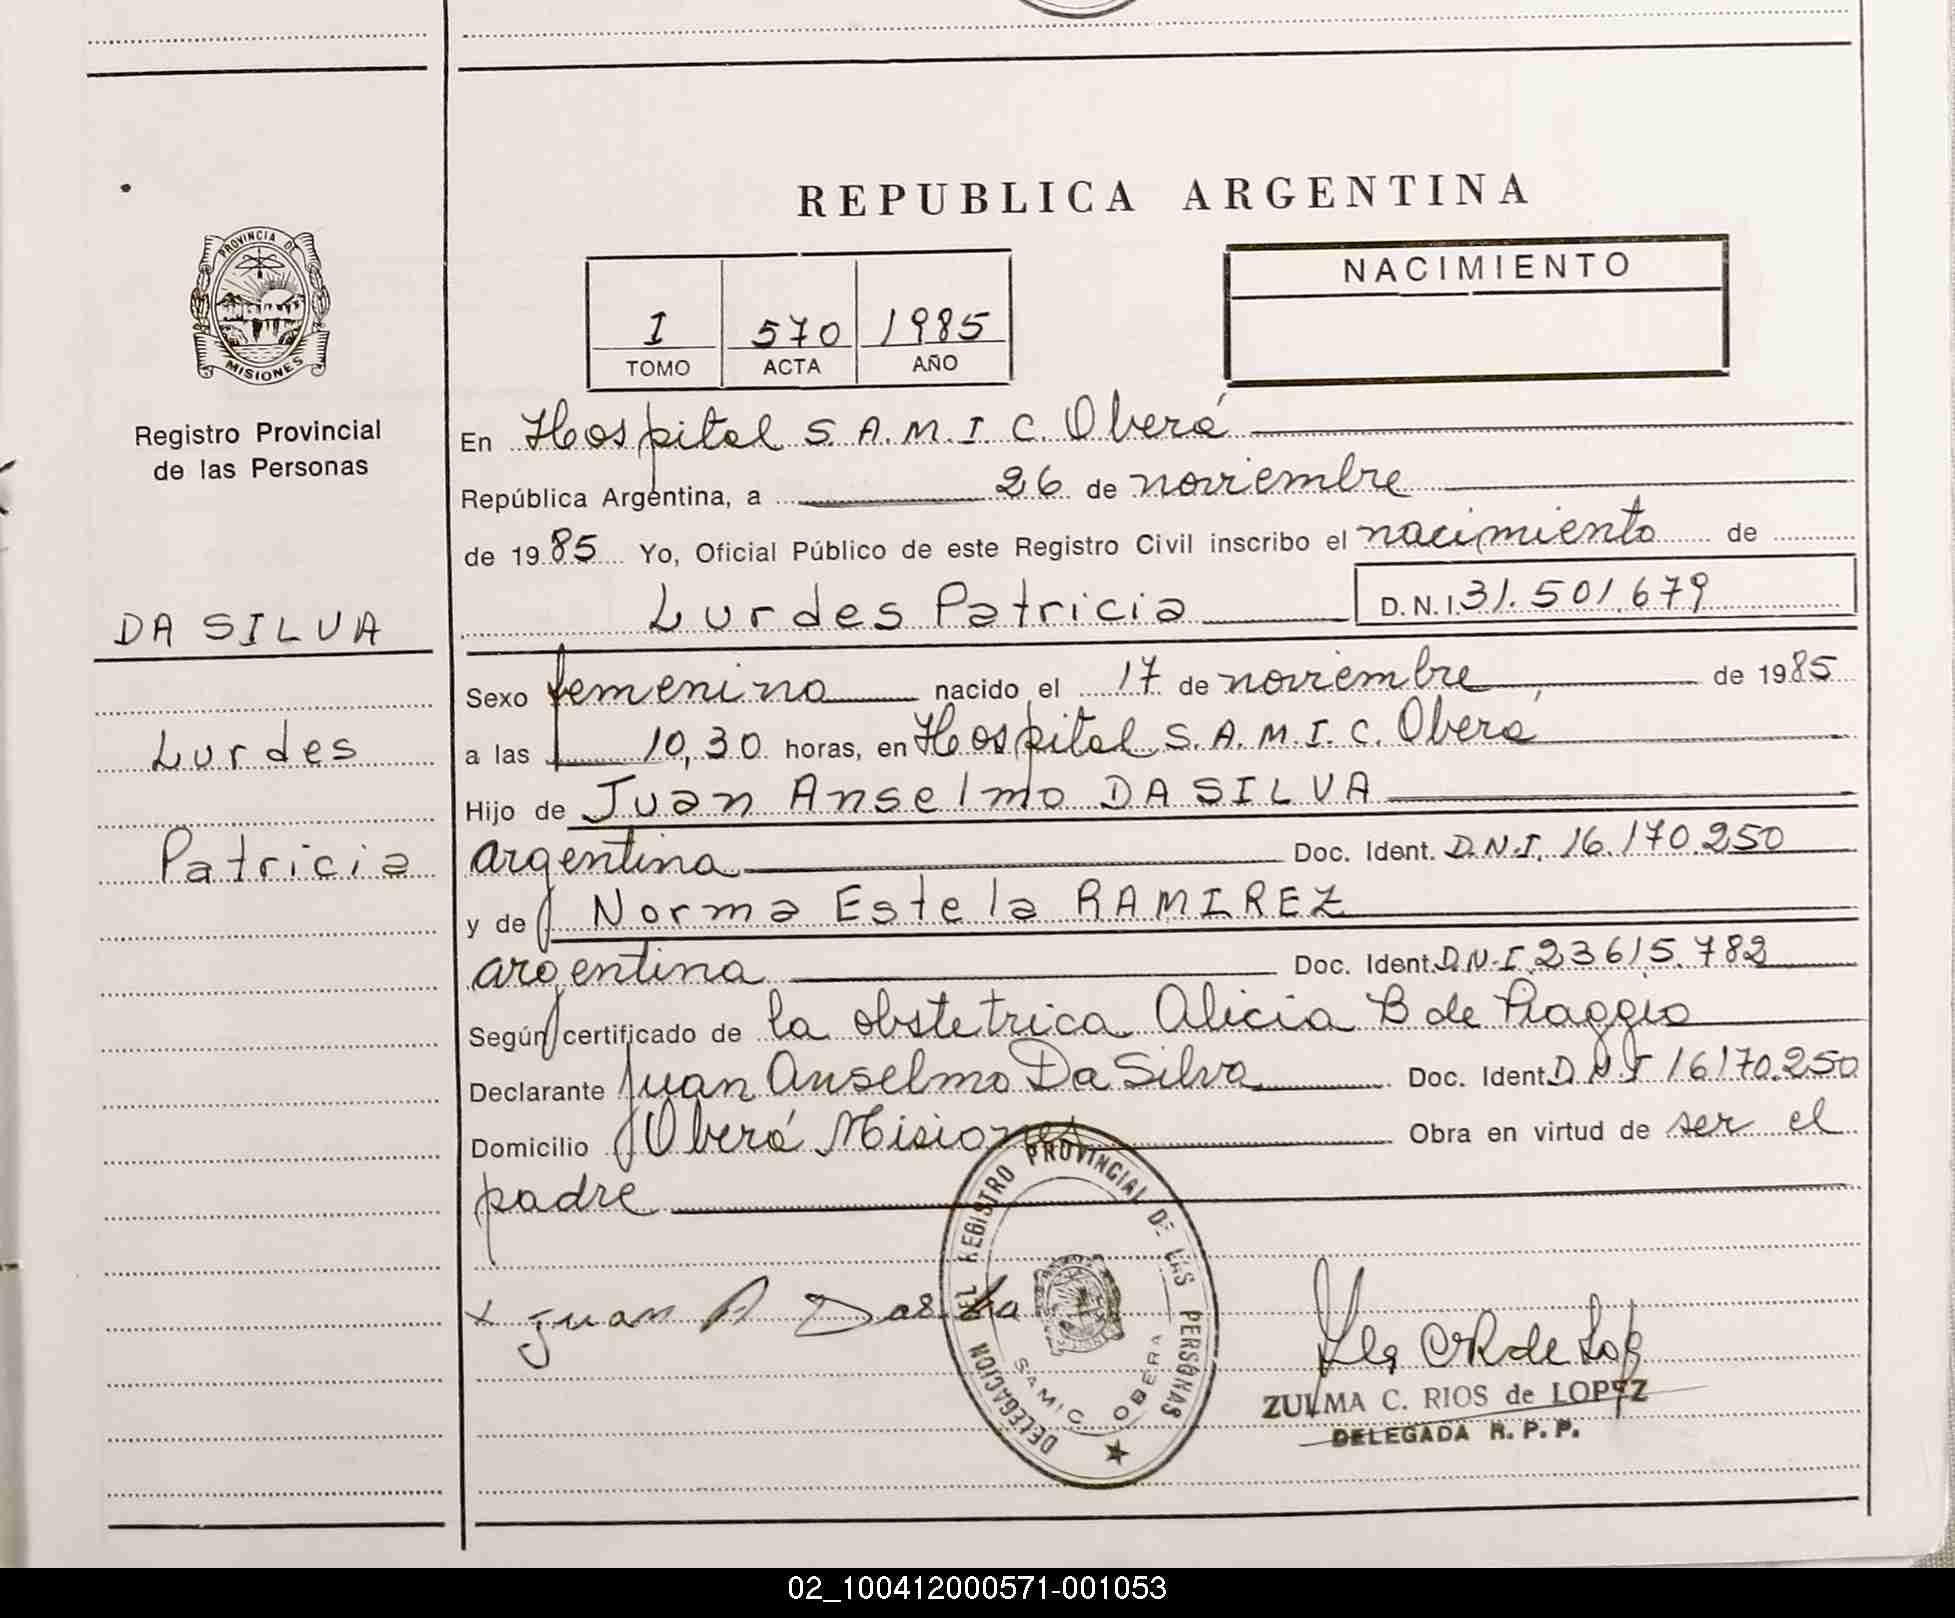 REPUBLICA ARGENTINA
PROVINCIA DE
MISIONES
Registro Provincial
de las Personas
DA SILVA
Lurdes
Patricia
NACIMIENTO
I 570 1985
TOMO ACTA AÑO
En Hospital S.A.M.I.C. Oberá
República Argentina, a 26 de noviembre
de 1985 Yo, Oficial Público de este Registro Civil inscribo el nacimiento de
Lurdes Patricia D.N.I. 31.501.679
Sexo femenino nacido el 17 de noviembre de 1985
a las 10,30 horas, en Hospital S.A.M.I.C. Oberá
Hijo de Juan Anselmo DA SILVA
argentina Doc. Ident. D.N.I. 16.170.250
y de Norma Estela RAMIREZ
argentina Doc. Ident. D.N.I. 23615.782
Según certificado de la obstetrica Alicia B de Piaggio
Declarante Juan Anselmo Da Silva Doc. Ident D.N.I 16170.250
Domicilio Oberá Misiones Obra en virtud de ser el
padre
x Juan A Dasilva
DELEGACION DEL REGISTRO PROVINCIAL DE LAS PERSONAS
SAMIC OBERA
ZULMA C. RIOS de LOPEZ
DELEGADA R. P. P.
02_100412000571-001053